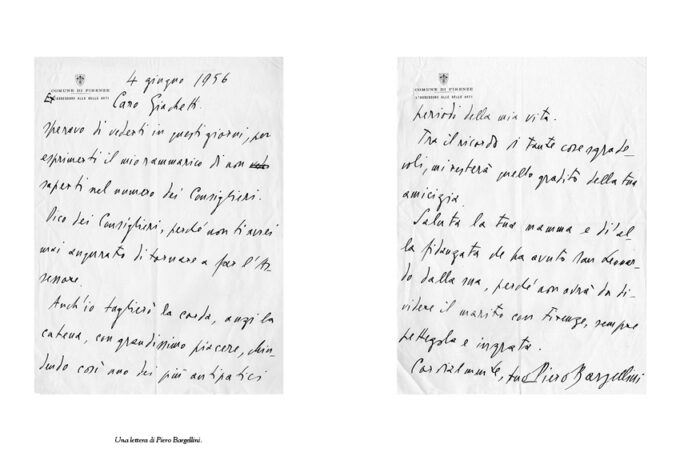 4 giugno 1956
COMUNE DI FIRENZE
L'ASSESSORE ALLE BELLE ARTI
Caro Giachetti.
speravo di vederti in questi giorni, per
esprimerti il mio rammarico di non
saperti nel numero dei Consiglieri.
Dico dei Consiglieri, perché non ti avrei
mai augurato di tornare a far l'As-
sessore.
Anch'io taglierò la corda, anzi la
catena, con grandissimo piacere, chiu-
dendo così uno dei più antipatici
COMUNE DI FIRENZE
L'ASSESSORE ALLE BELLE ARTI
periodi della mia vita.
Tra il ricordo di tante cose sgrade-
voli, mi resterà quello gradito della tua
amicizia.
Saluta la tua mamma e di' al-
la fidanzata che ha avuto san Leonar-
do dalla sua, perché non avrà da di-
videre il marito con Firenze, sempre
pettegola e ingrata.
Cordialmente, tuo Piero Bargellini
Una lettera di Piero Bargellini.